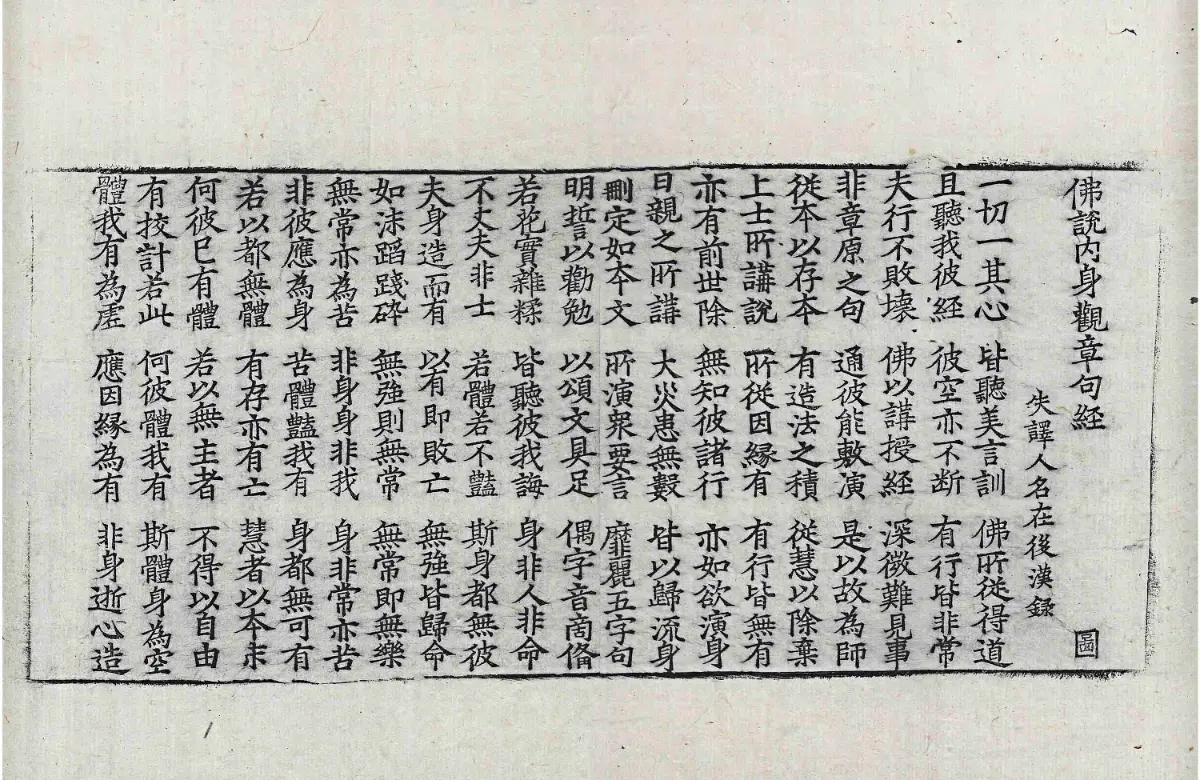 佛説内身觀章句經 圖
失譯人名在後漢録
一切一其心 皆聽美言訓 佛所從得道
且聽我彼經 彼空亦不斷 有行皆非常
夫行不敗壞 佛以講授經 深微難見事
非章原之句 通彼能敷演 是以故為師
從本以存本 有造法之積 從慧以除棄
上士所講說 所從因緣有 有行皆無有
亦有前世除 無知彼諸行 亦如欲演身
日親之所講 大災患無數 皆以歸流身
刪定如本文 所演衆要言 靡麗五字句
明誓以勸勉 以頌文具足 偶字音商俻
若花實雜糅 皆聽彼我誨 身非人非命
不丈夫非士 若體若不豔 斯身都無彼
夫身造而有 以有即敗亡 無強皆歸命
如沫蹈踐碎 無強則無常 無常即無樂
無常亦為苦 非身身非我 身非常亦苦
非彼應為身 苦體豔我有 身都無可有
若以都無體 有存亦有亡 慧者以本末
何彼已有體 若以無主者 不得以自由
有挍計若此 何彼體我有 斯體身為空
體我有為虛 應因緣為有 非身逝心造